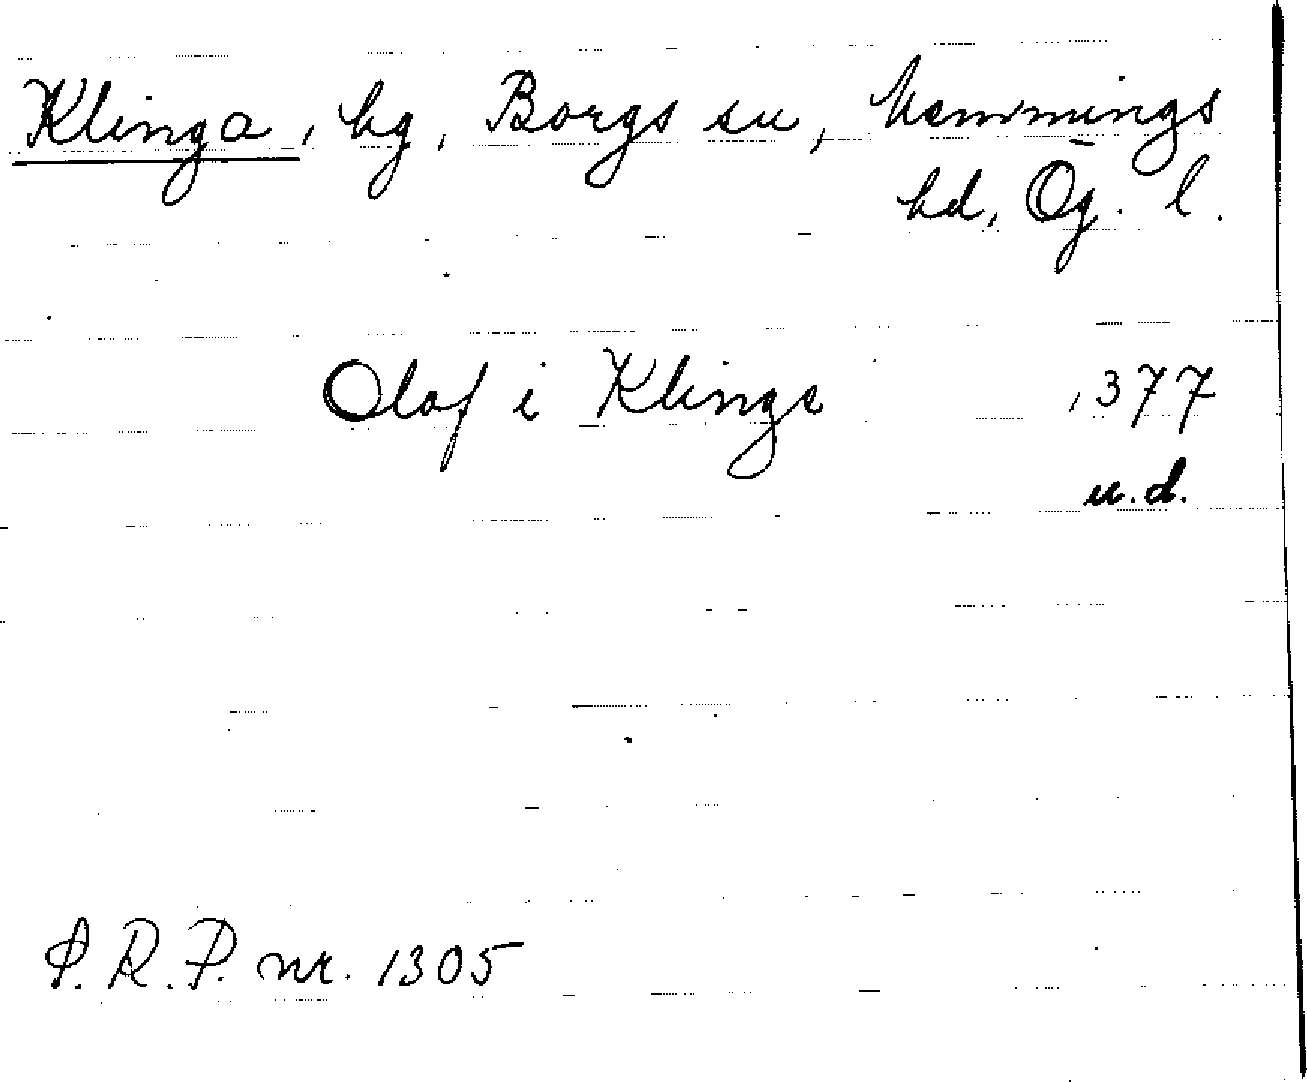 Klinga, by, Borgs sn, Memmings
hd, Ög. l.
Olaf i Klinge 1377
u.d.
S.R.P. nr. 1305